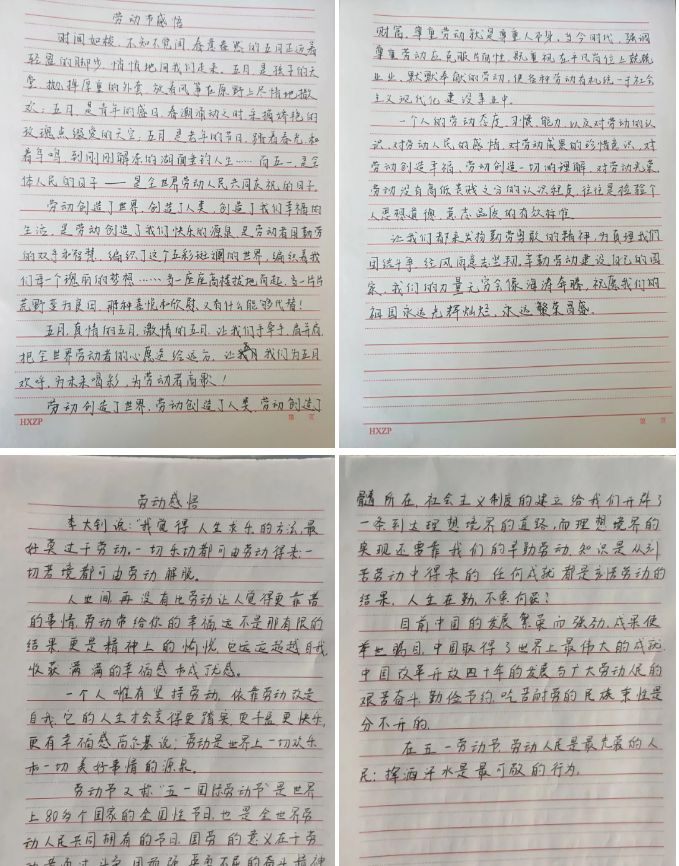 劳动节感悟
时间如梭，不知不觉间，春意盎然的五月正迈着
轻盈的脚步，悄悄地向我们走来。五月，是孩子的天
堂，抛掉厚重的外套，放着风筝在原野上尽情地撒
欢；五月，是青年的盛日，春潮涌动之时，采摘绮艳的
玫瑰点缀爱的天空；五月，是老年的节日，踏着春光，和
着鸟鸣，到刚刚解冻的湖面垂钓人生……而五一，是全
体人民的日子——是全世界劳动人民共同庆祝的日子。
劳动创造了世界，创造了人类，创造了我们幸福的
生活，是劳动创造了我们快乐的源泉，是劳动者用勤劳
的双手和智慧，编织了这个五彩斑斓的世界，编织着我
们每一个瑰丽的梦想……当一座座高楼拔地而起，当一片片
荒野变为良田，那种喜悦和欣慰，又有什么能够代替！
五月，真情的五月，激情的五月，让我们手牵手，肩并肩，
把全世界劳动者的心愿送给远方，让我们为五月
欢呼，为未来喝彩，为劳动者高歌！
劳动创造了世界，劳动创造了人类，劳动创造了
HXZP
第 页
财富，尊重劳动就是尊重人本身，当今时代，强调
尊重劳动应克服片面性，既重视在平凡岗位上兢兢
业业，默默奉献的劳动，使各种劳动有机统一于社会
主义现代化建设事业中。
一个人的劳动态度，习惯，能力，以及对劳动的认
识，对劳动人民的感情，对劳动成果的珍惜意识，对
劳动创造幸福、劳动创造一切的理解，对劳动光荣，
劳动没有高低贵贱之分的认识程度，往往是检验个
人思想道德、意志品质的有效标准。
让我们都来发扬勤劳勇敢的精神，为真理我们
团结斗争，经风雨意志坚韧，辛勤劳动建设自己的国
家，我们的力量无穷像海涛奔腾，祝愿我们的
祖国永远光辉灿烂，永远繁荣昌盛。
HXZP
第 页
劳动感悟
李大钊说："我觉得人生求乐的方法，最
好莫过于劳动。一切乐功都可由劳动得来，一
切苦境都可由劳动解脱。
人世间，再没有比劳动让人觉得更靠谱
的事情，劳动带给你的幸福远不是那有限的
结果，更是精神上的愉悦，它远远超越自我，
收获满满的幸福感和成就感。
一个人唯有坚持劳动，依靠劳动改造
自我，它的人生才会变得更踏实更丰盈更快乐，
更有幸福感。高尔基说：劳动是世界上一切欢乐
和一切美好事情的源泉。
劳动节又称"五一国际劳动节"是世界
上80多个国家的全国性节日，也是全世界劳
动人民共同拥有的节日，国劳的意义在于劳
髓所在，社会主义制度的建立给我们开辟了
一条到达理想境界的道路，而理想境界的
实现还要靠我们的辛勤劳动，知识是从刻
苦劳动中得来的，任何成就都是刻苦劳动的
结果，人生在勤，不索何获？
目前中国的发展繁荣而强劲，成果使
举世瞩目，中国取得了世界上最伟大的成就
中国改革开放四十年的发展与广大劳动人民的
艰苦奋斗、勤俭节约，吃苦耐劳的民族秉性是
分不开的。
在五一劳动节，劳动人民是最光荣的人
民；挥洒汗水是最可敬的行为。